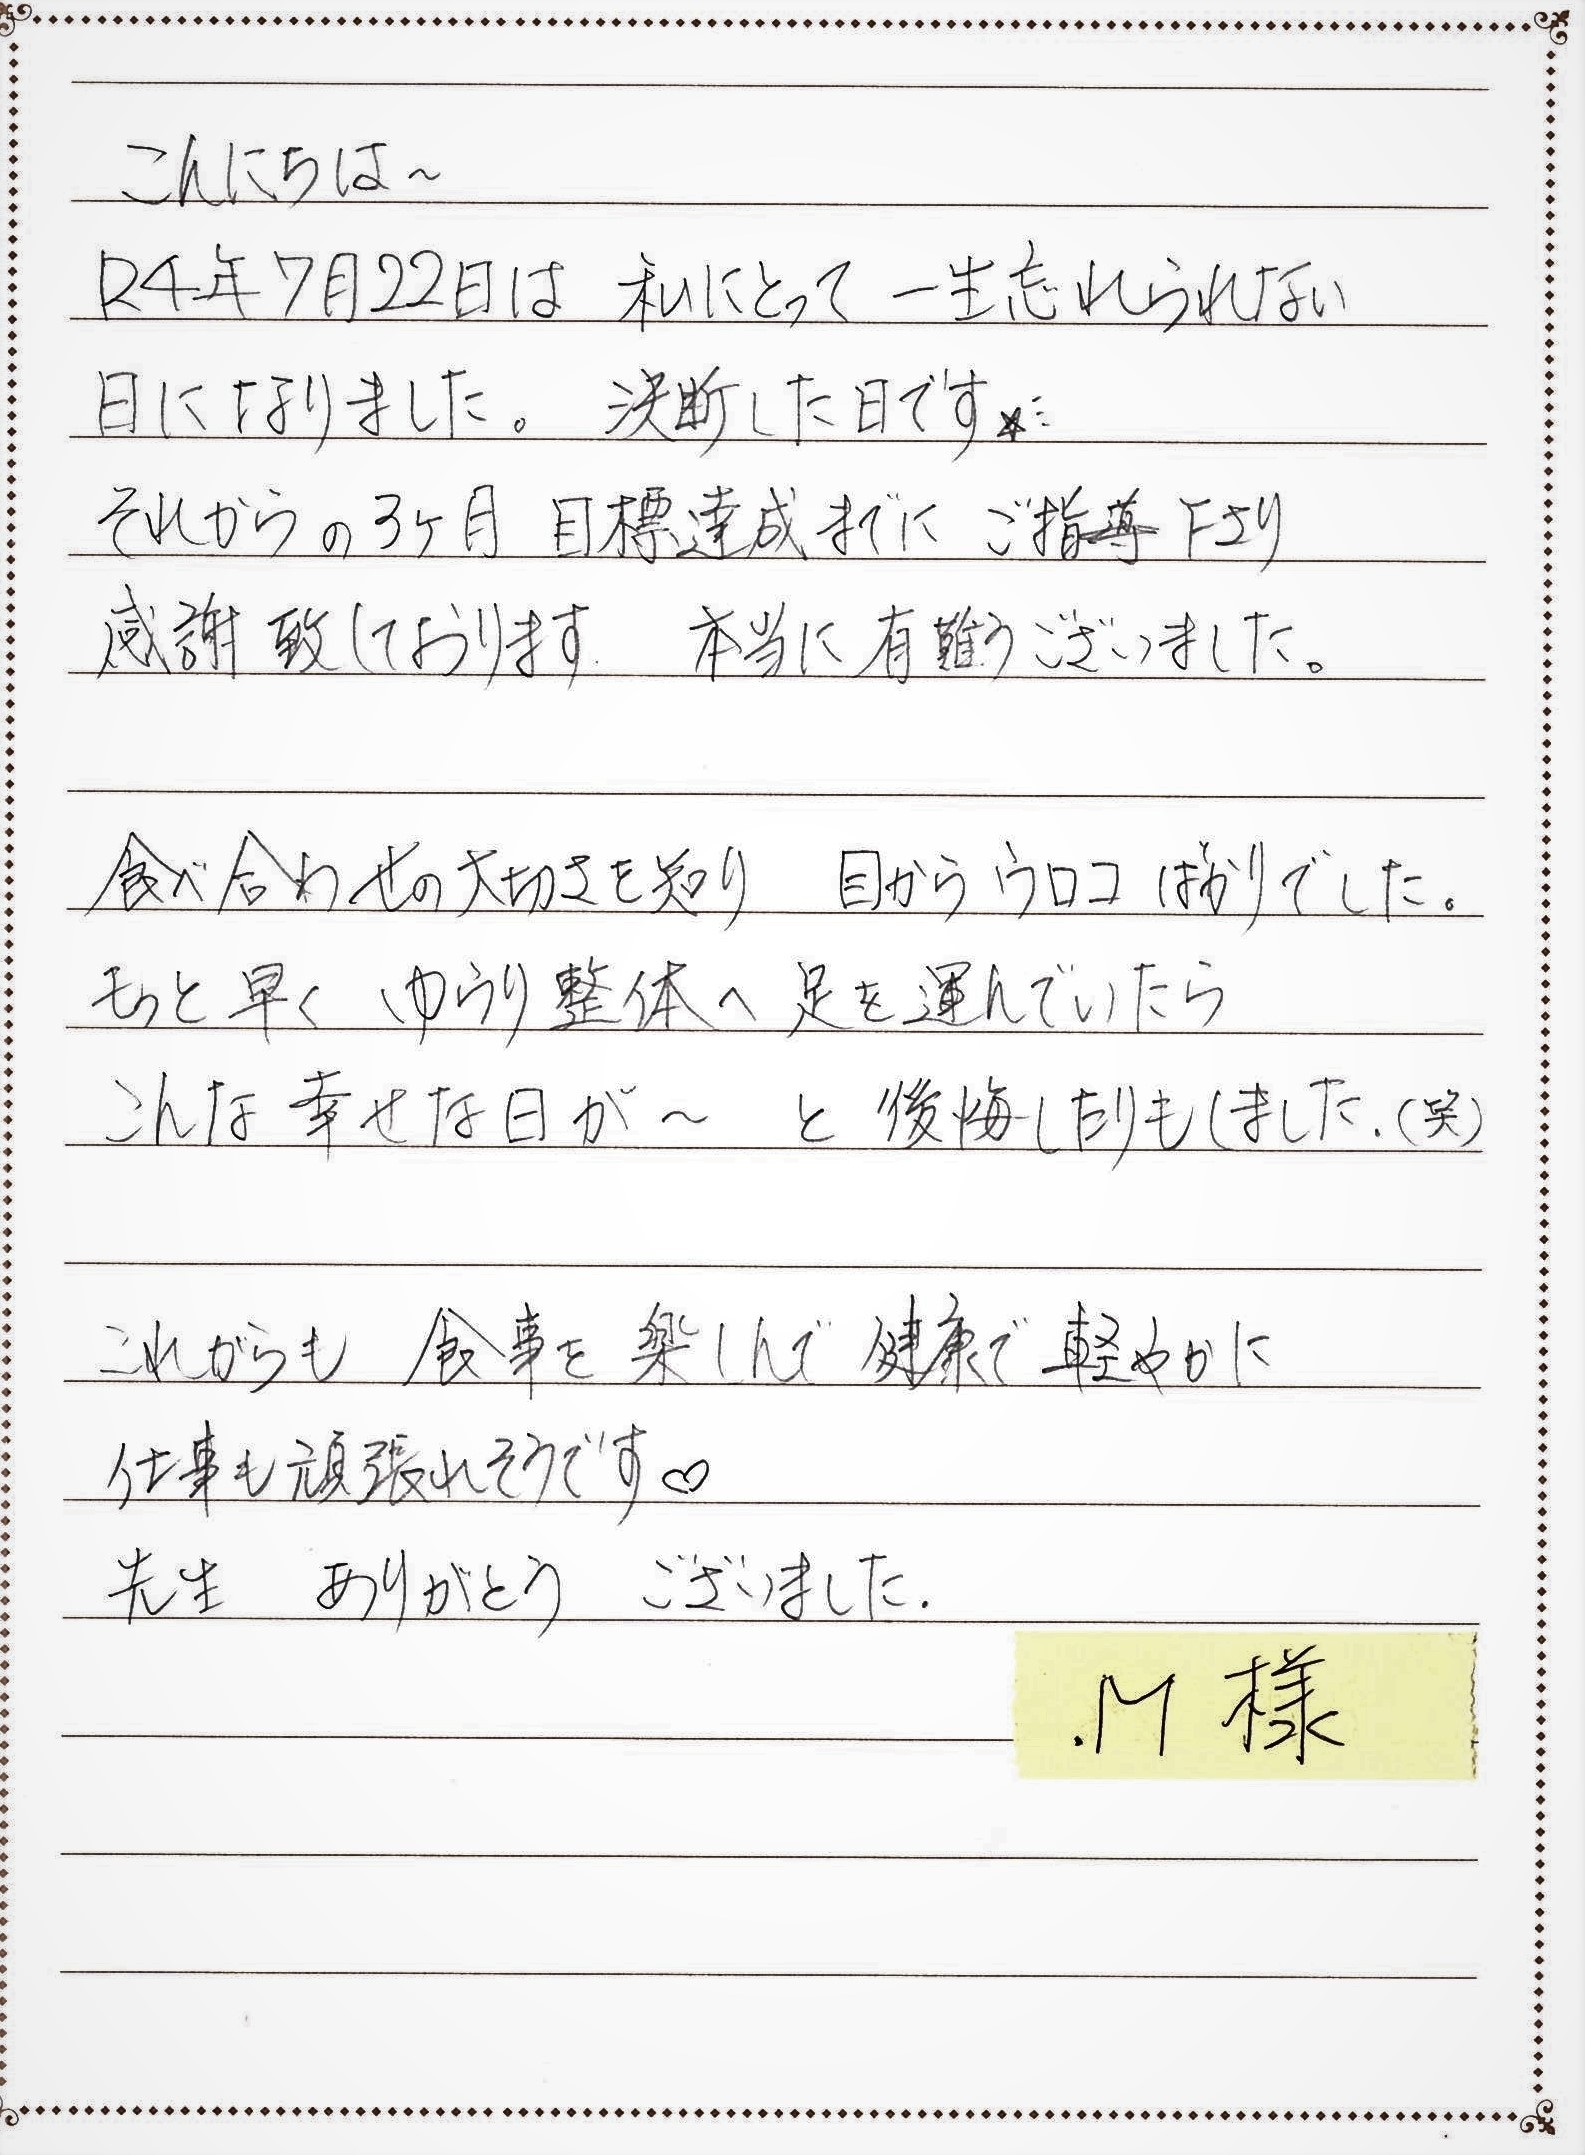 こんにちは～
R4年7月22日は 私にとって 一生忘れられない
日になりました。 決断した日です☆
それからの3ヶ月 目標達成までに ご指導下さり
感謝致しております 本当に有難うございました。
食べ合わせの大切さを知り 目からウロコばかりでした。
もっと早く ゆらり整体へ足を運んでいたら
こんな幸せな日が～ と後悔したりもしました.(笑)
これからも 食事を楽しんで健康で軽やかに
仕事も頑張れそうです♡
先生 ありがとう ございました.
.M 様